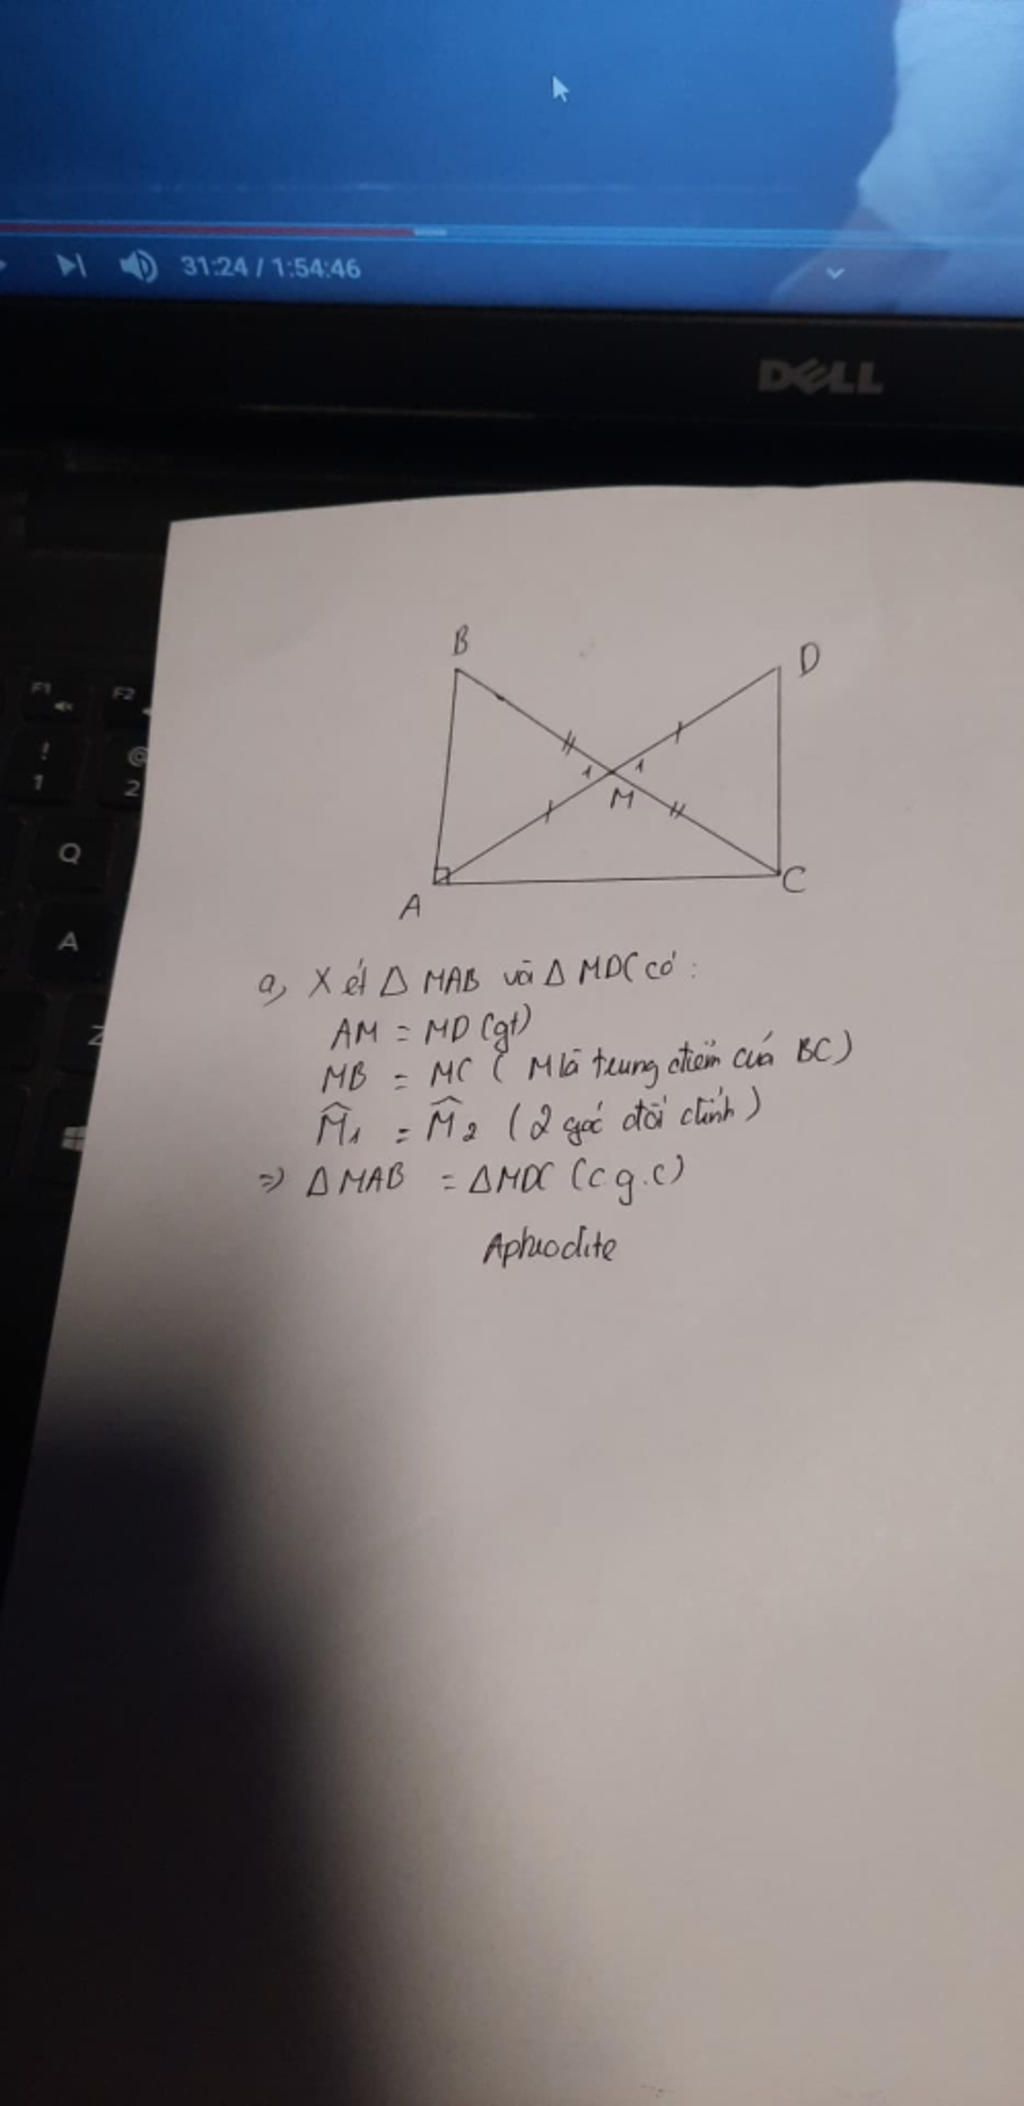 31:24 / 1:54:46
DELL
F1
F2
!
1
@
2
Q
A
Z
B
D
1
1
M
A
C
a, Xét Δ MAB và Δ MDC có :
AM = MD (gt)
MB = MC ( M là trung điểm của BC)
M̂1 = M̂2 ( 2 góc đối đỉnh )
=> ΔMAB = ΔMDC (c.g.c)
Aphrodite